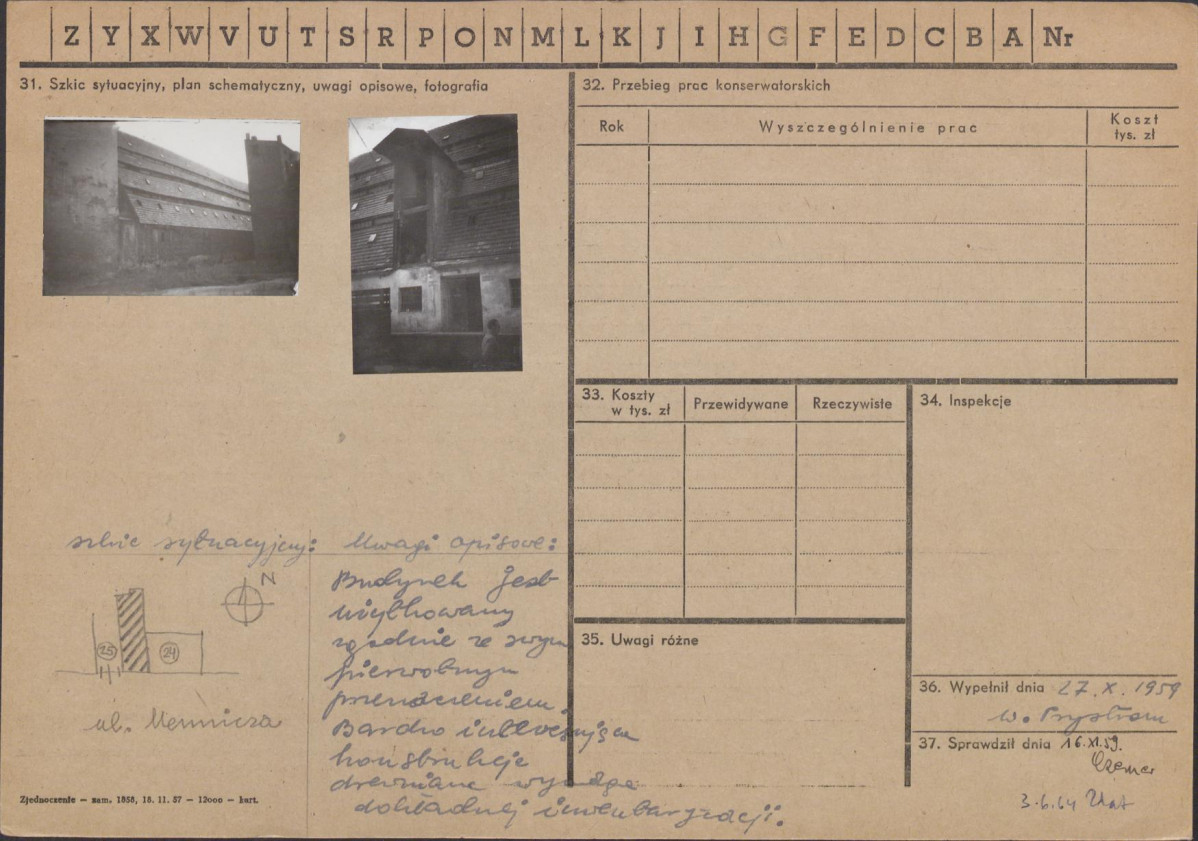 Z Y X W V U T S R P O N M L K J I H G F E D C B A Nr
31. Szkic sytuacyjny, plan schematyczny, uwagi opisowe, fotografia
szkic sytuacyjny:
N
25
24
ul. Mennicza
Uwagi opisowe:
Budynek jest
użytkowany
zgodnie ze swym
pierwotnym
przeznaczeniem.
Bardzo interesująca
konstrukcja
drewniana wymaga
dokładnej inwentaryzacji.
Zjednoczenie – zam. 1858, 18. 11. 57 – 12000 – kart.
32. Przebieg prac konserwatorskich
Rok Wyszczególnienie prac Koszt
tys. zł
33. Koszty
w tys. zł Przewidywane Rzeczywiste
34. Inspekcje
35. Uwagi różne
36. Wypełnił dnia 27. X. 1959
37. Sprawdził dnia 16.XI.59.
3.6.64